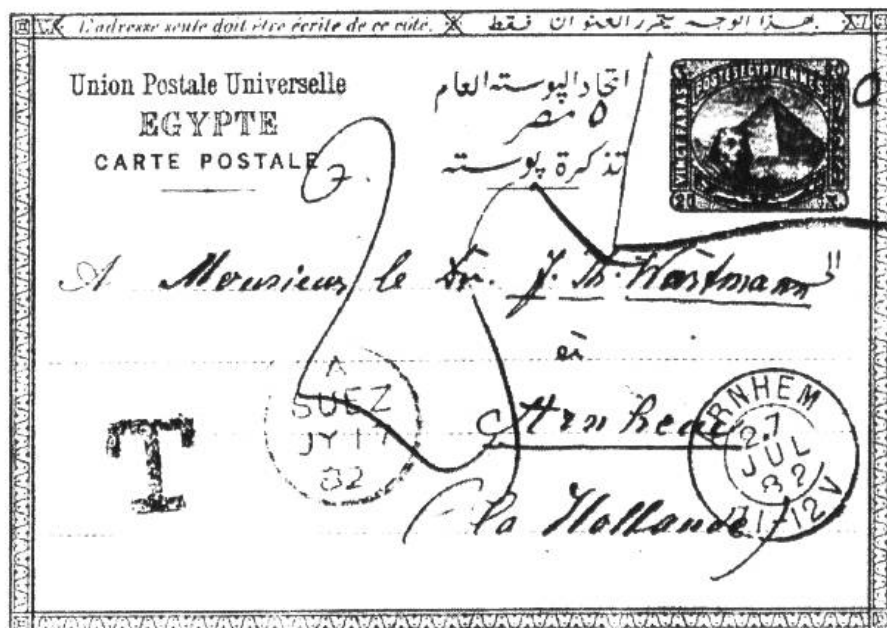 L'adresse seule doit être écrite de ce côté. بهذا الوجه يتحرر العنوان فقط
Union Postale Universelle
EGYPTE
CARTE POSTALE
اتحاد البوسته العام
٥ مصر
تذكرة بوسته
POSTES EGYPTIENNES
VINGT PARAS
20
A Monsieur le Dr. J. Th.
à
Arnhem
la Hollande
T
A
SUEZ
JY 17
82
ARNHEM
27
JUL
82
11-12V